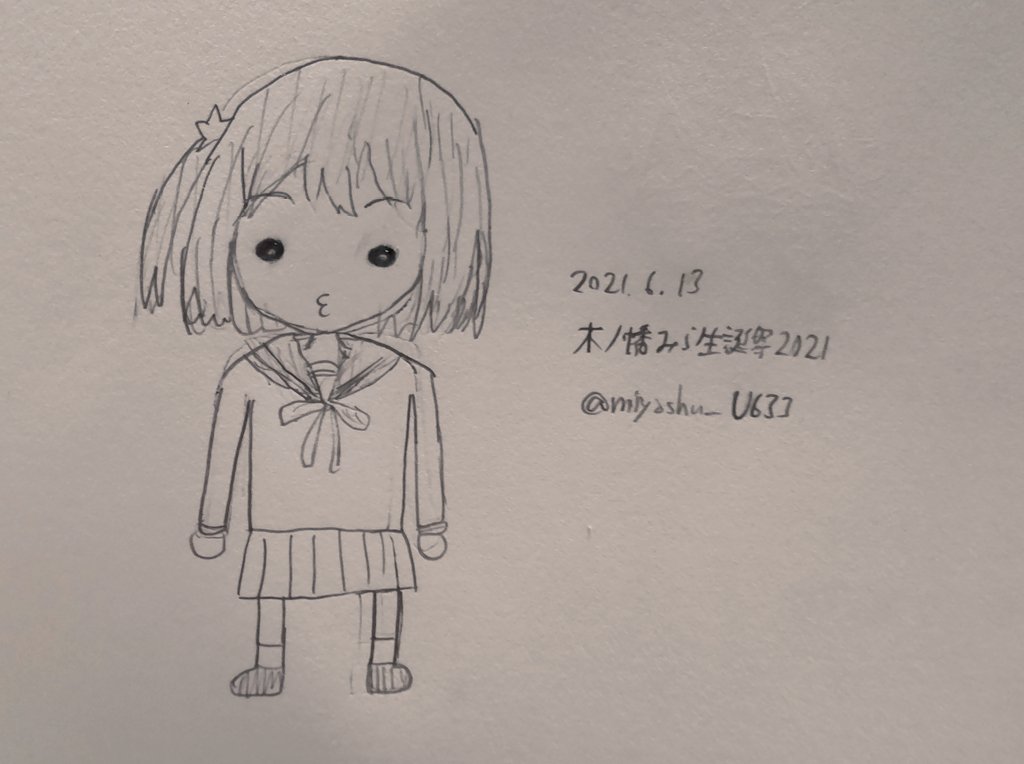 2021.6.13
木ノ幡みら生誕祭2021
@miyashu_U633